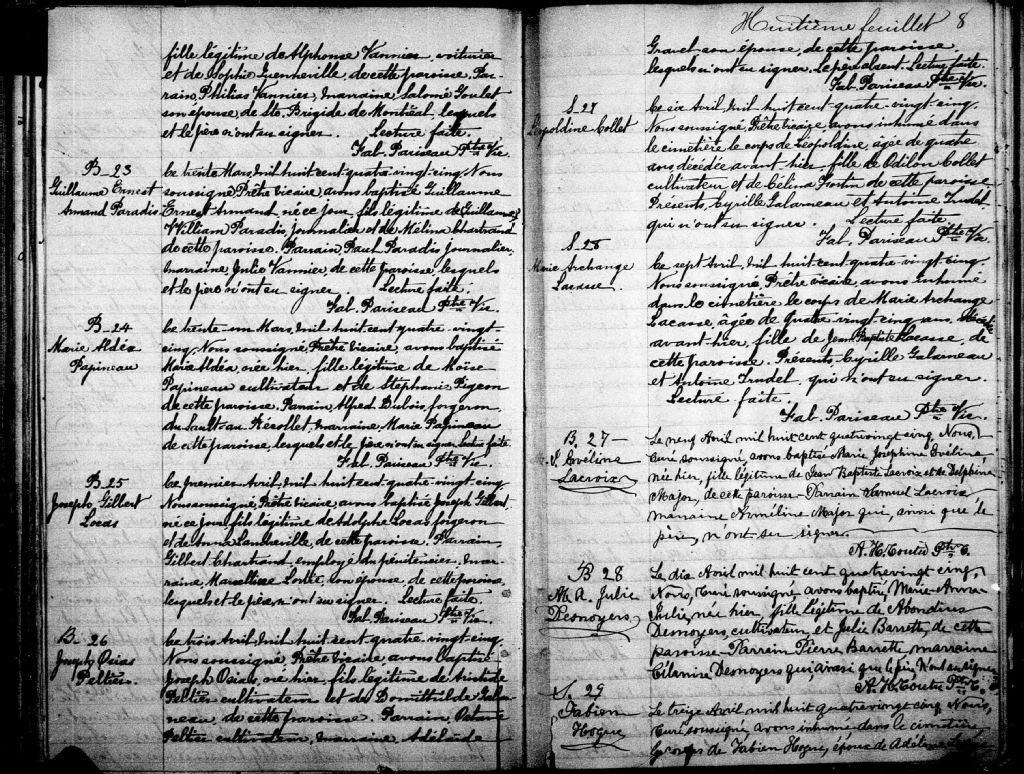 fille légitime de Alphonse Vannier voiturier
et de Sophie Quenneville, de cette paroisse, Par-
rain, Philias Vannier, marraine, Salomé Goulet
son épouse de Ste. Brigide de Montréal, lesquels
et le père n'ont su signer. Lecture faite.
Fab. Pariseau Ptre Vic.
B_23
Guillaume Ernest
Armand Paradis
Ce trente Mars, mil huit cent quatre-vingt-cinq Nous
soussigné, Prêtre Vicaire, avons baptisé Guillaume
Ernest Armand, né ce jour, fils légitime de Guillaume
William Paradis journalier et de Mélina Chartrand
de cette paroisse. Parrain, Paul Paradis journalier,
marraine Julie Vannier, de cette paroisse, lesquels
et le père n'ont su signer. Lecture faite.
Fab. Pariseau Ptre Vic.
B_24
Marie Aldéa
Papineau
Ce trente-un Mars, mil huit cent quatre-vingt-
cinq, Nous soussigné, Prêtre Vicaire, avons baptisé
Marie Aldéa, née hier, fille légitime de Moïse
Papineau cultivateur et de Stéphanie Pigeon
de cette paroisse. Parrain, Alfred Dubois, forgeron
du Sault-au Récollet, marraine Marie Papineau
de cette paroisse, lesquels et le père n'ont su signer. Lecture faite
Fab. Pariseau Ptre Vic.
B 25
Joseph Gilbert
Locas
Ce premier Avril, mil huit cent quatre-vingt-cinq
Nous soussigné, Prêtre Vicaire, avons baptisé Joseph Gilbert,
né ce jour, fils légitime de Adolphe Locas forgeron
et de Anna de cette paroisse. Parrain,
Gilbert Chartrand, employé du pénitencier, mar-
raine, Marcelline son épouse, de cette paroisse,
lesquels et le père n'ont su signer. Lecture faite.
Fab. Pariseau Ptre Vic.
B_ 26
Joseph Osias
Peltier
Ce trois Avril, mil huit cent quatre-vingt-cinq
Nous soussigné, Prêtre Vicaire avons baptisé
Joseph Osias, né hier, fils légitime de Aristide
Peltier cultivateur et de Domithilde Galar-
neau, de cette paroisse. Parrain, Octave
Peltier cultivateur, marraine, Adélaïde
Huitième feuillet 8
Gravel son épouse, de cette paroisse,
lesquels n'ont su signer. Le père absent. Lecture faite.
Fab. Pariseau Ptre Vic.
S_27
Léopoldine Collet
Ce six Avril, mil huit cent-quatre-vingt-cinq.
Nous soussigné, Prêtre Vicaire, avons inhumé dans
le cimetière le corps de Léopoldine, âgée de quatre
ans, décédée avant-hier, fille de Odilon Collet
cultivateur et de Célina Fortin de cette paroisse.
Présents, Cyrille Galarneau et Antoine Trudel,
qui n'ont su signer. Lecture faite
Fab, Pariseau Ptre Vic.
S_28
Marie Archange
Lacasse
Ce sept Avril, mil huit-cent-quatre-vingt-cinq.
Nous soussigné, Prêtre Vicaire, avons inhumé
dans le cimetière le corps de Marie Archange
Lacasse, âgée de quatre-vingt-cinq ans, décédée
avant-hier, fille de Jean Baptiste Lacasse, de
cette paroisse. Présents, Cyrille Galarneau
et Antoine Trudel, qui n'ont su signer.
Lecture faite.
Fab. Pariseau Ptre Vic.
B. 27_
M. J. Evélina
Lacroix
Le neuf Avril mil huit cent quatrevingt cinq, Nous,
Curé soussigné, avons baptisé Marie Joséphine Evélina,
née hier, fille légitime de Jean Baptiste Lacroix et de Delphine
Major, de cette paroisse _ Parrain Samuel Lacroix
marraine Arméline Major qui, ainsi que le
père, n'ont su signer.
A. H. Coutu Ptre C.
B 28
M. A. Julie
Desnoyers
Le dix Avril mil huit cent quatrevingt cinq,
Nous, Curé soussigné, avons baptisé Marie-Anna-
Julie, née hier, fille légitime de Abondius
Desnoyers, cultivateur, et Julie Barrette, de cette
paroisse _ Parrain Pierre Barrette, marraine
Célanire Desnoyers qui, ainsi que le père, n'ont su signer
A. H. Coutu Ptre C.
S. 29
Fabien
Hogue
Le treize Avril mil huit cent quatrevingt cinq Nous,
Curé soussigné, avons inhumé dans le cimetière
le corps de Fabien Hogue, époux de Adéline